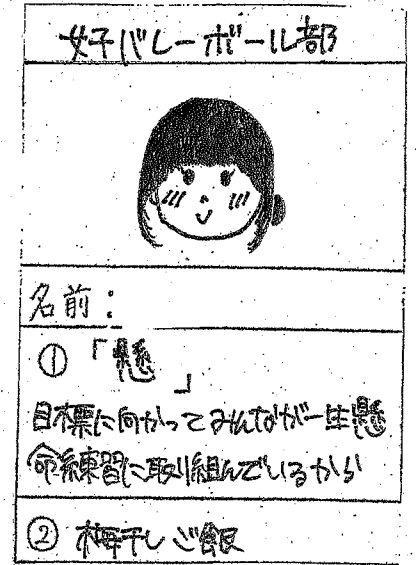 女子バレーボール部
名前：
①「懸」
目標に向かってみんなが一生懸
命練習に取り組んでいるから
②梅干しご飯